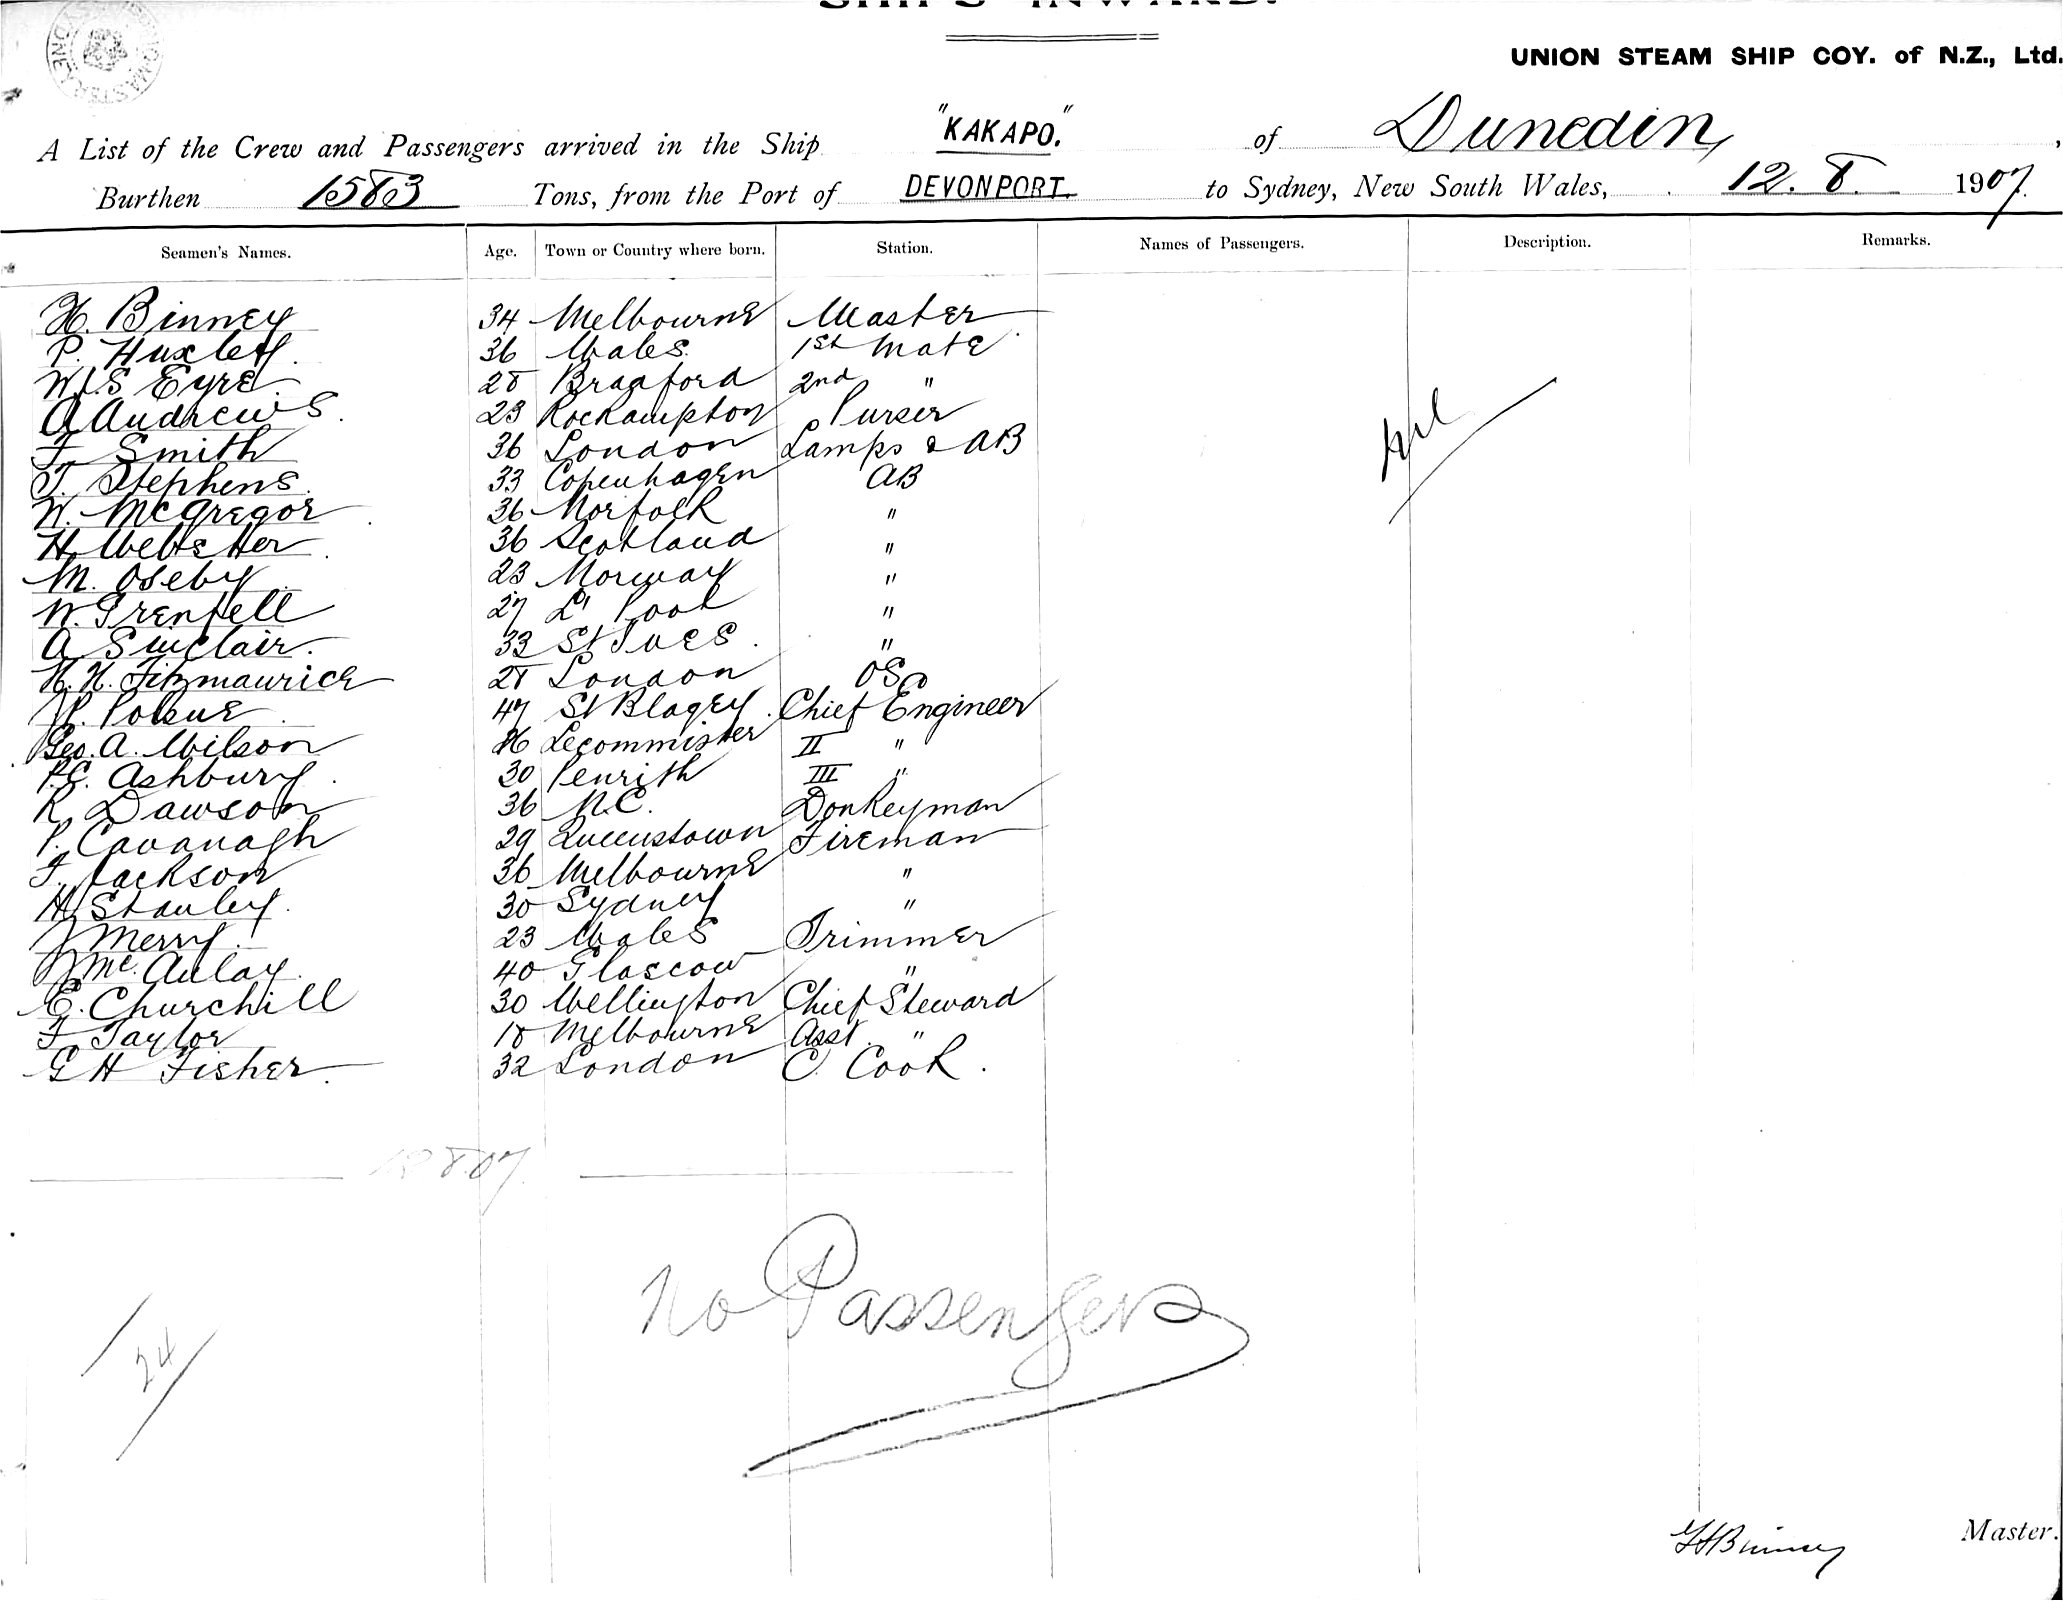 SHIPS INWARD.
UNION STEAM SHIP COY. of N.Z., Ltd.
A List of the Crew and Passengers arrived in the Ship "KAKAPO." of Dunedin,
Burthen 1583 Tons, from the Port of DEVONPORT. to Sydney, New South Wales, 12. 8. 1907.
Seamen's Names. Age. Town or Country where born. Station. Names of Passengers. Description. Remarks.
H. Binney 34 Melbourne Master
P. Huxley 36 Wales. 1st Mate
W.S Eyre 28 Bradford 2nd "
A Andrews 23 Rockampton Purser
F. Smith 36 London Lamps & AB
T. Stephens 33 Copenhagen AB
W. McGregor 36 Norfolk "
H. Webster 36 Scotland "
M. Oseby 23 Norway "
W. Grenfell 27 L' Pool "
A Sinclair. 33 St Ives "
H. H. Fitzmaurice 28 London OS
47 St Blazey Chief Engineer
Geo. A. Wilson Leominister II "
P.E. Ashbury 30 Penrith III "
R. Dawson 36 N.C. Donkeyman
P. Cavanagh 29 Queenstown Fireman
F. Jackson 36 Melbourne "
H Stanley. 30 Sydney "
J Merry. 23 Wales Trimmer
J Mc. Aulay. 40 Glascow "
E. Churchill 30 Wellington Chief Steward
F Taylor 18 Melbourne Asst. "
G H Fisher 32 London C. Cook.
Nil
8.07
No Passengers
24
Binney Master.